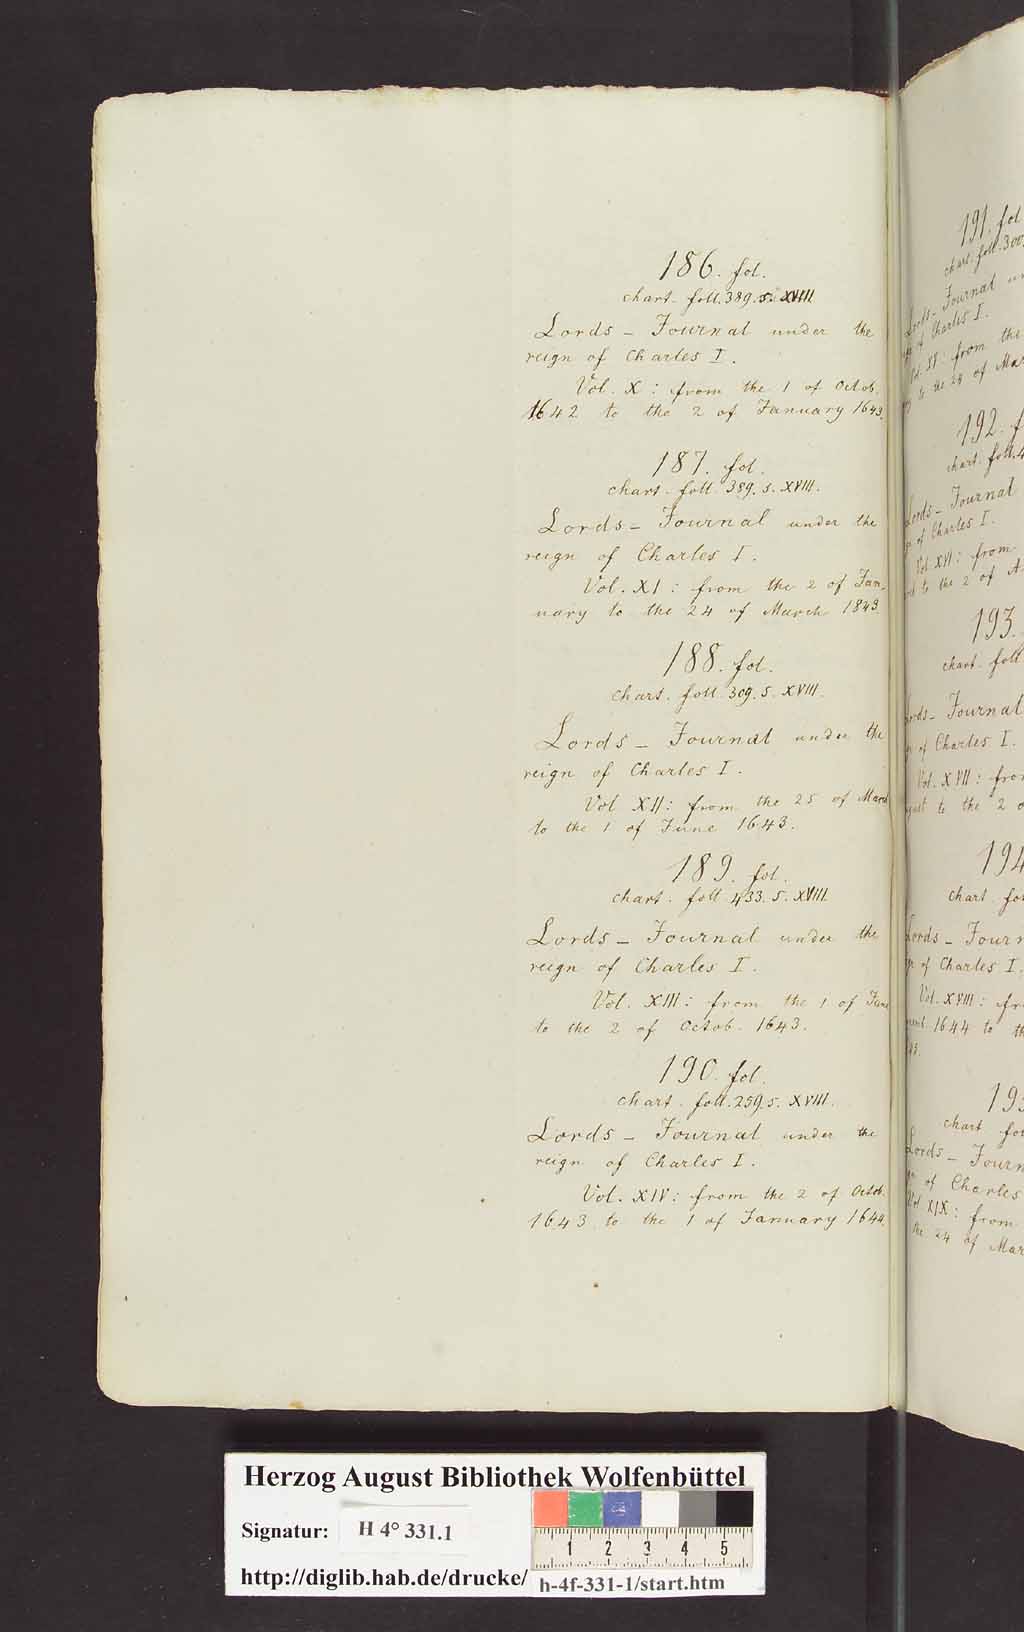 186. fol.
chart. foll. 389. s. XVIII.
Lords - Journal under the
reign of Charles I.
Vol. X : from the 1 of Octob.
1642 to the 2 of January 1643.
187. fol.
chart. foll. 389. s. XVIII.
Lords - Journal under the
reign of Charles I.
Vol. XI : from the 2 of Jan-
uary to the 24 of March 1843.
188. fol.
chart. foll. 309. s. XVIII.
Lords - Journal under the
reign of Charles I.
Vol XII : from the 25 of March
to the 1 of June 1643.
189. fol.
chart. foll. 433. s. XVIII.
Lords - Journal under the
reign of Charles I.
Vol. XIII : from the 1 of June
to the 2 of Octob. 1643.
190. fol.
chart. foll. 259. s. XVIII.
Lords - Journal under the
reign of Charles I.
Vol. XIV : from the 2 of Octob.
1643 to the 1 of January 1644.
191. fol
chart. foll. 300.
Lords - Journal
of Charles I.
XV : from the
to the 24 of Mar
192.
chart. foll.
Lords - Journal
of Charles I.
Vol. XVI : from
to the 2 of
193.
chart. foll
Journal
of Charles I.
Vol. XVII :
to the 2
194
chart.
Lords -
of Charles I.
Vol. XVIII :
1644 to
chart
Lords -
of Charles
Vol. XIX : from
the 24 of Mar
Herzog August Bibliothek Wolfenbüttel
Signatur: H 4° 331.1
1 2 3 4 5
http://diglib.hab.de/drucke/ h-4f-331-1/start.htm